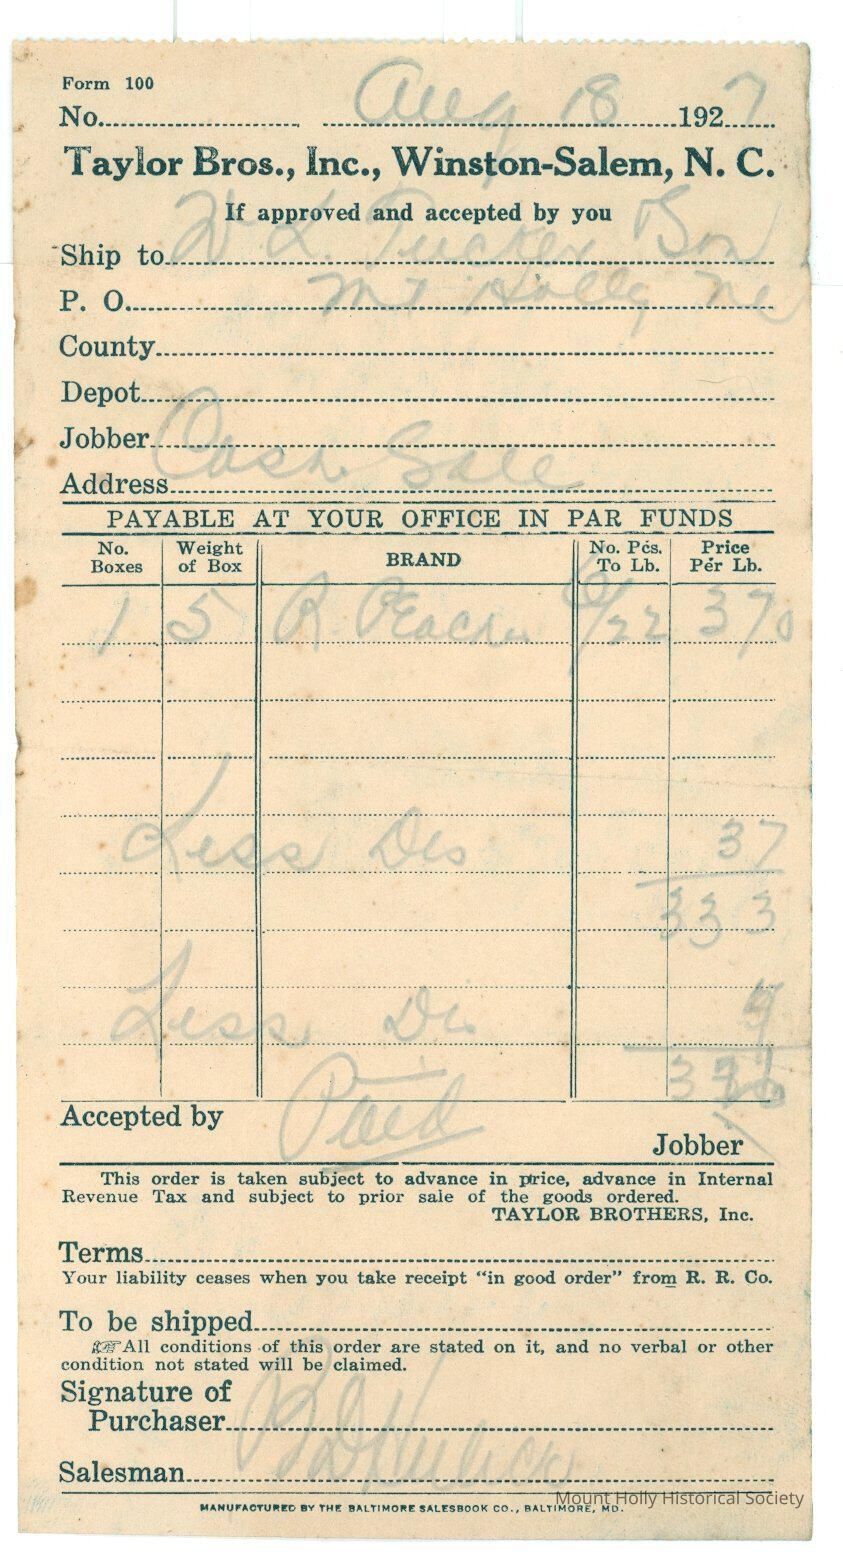 Form 100
No. Aug 18 1927
Taylor Bros., Inc., Winston-Salem, N. C.
If approved and accepted by you
Ship to W L. Tucker Son
P. O. Mt Holly NC
County
Depot
Jobber Cash Sale
Address
PAYABLE AT YOUR OFFICE IN PAR FUNDS
No. Boxes Weight of Box BRAND No. Pcs. To Lb. Price Per Lb.
1 5 R. Peach 6/22 370
Less Dis 37
333
Less Dis
Paid
Accepted by
Jobber
This order is taken subject to advance in price, advance in Internal
Revenue Tax and subject to prior sale of the goods ordered.
TAYLOR BROTHERS, Inc.
Terms
Your liability ceases when you take receipt “in good order” from R. R. Co.
To be shipped
☞All conditions of this order are stated on it, and no verbal or other
condition not stated will be claimed.
Signature of
Purchaser
Salesman
Mount Holly Historical Society
MANUFACTURED BY THE BALTIMORE SALESBOOK CO., BALTIMORE, MD.